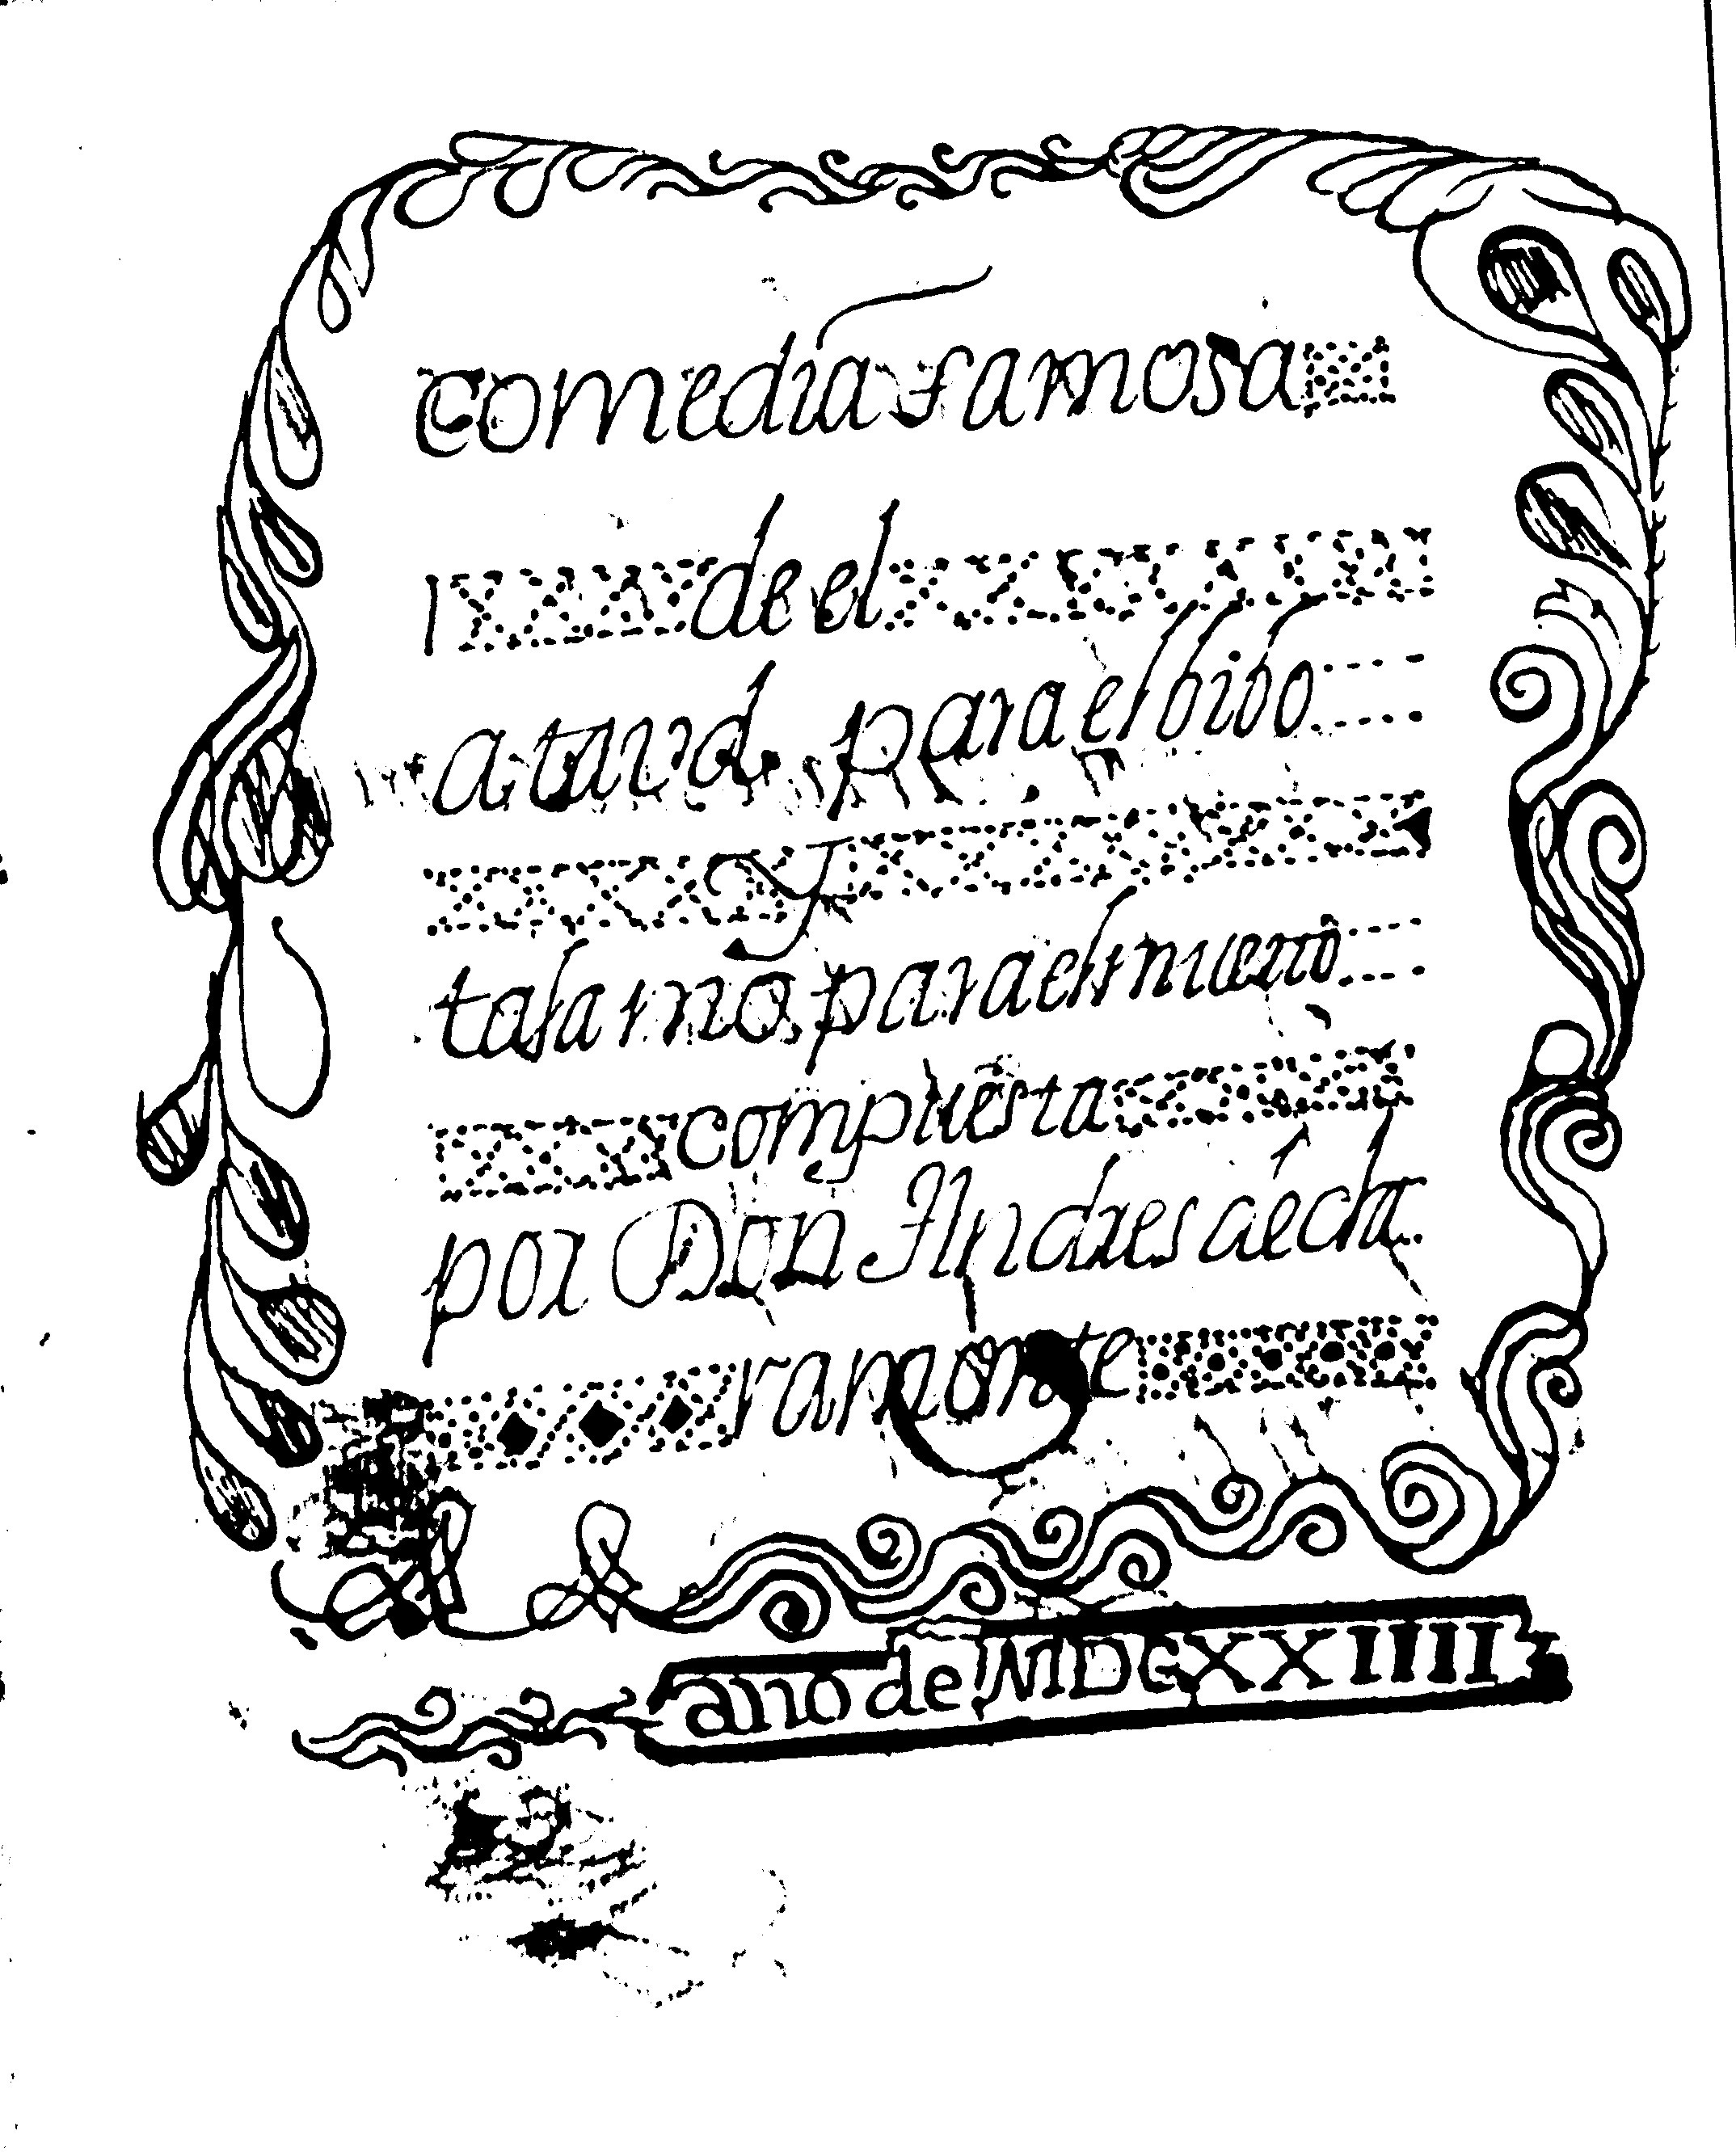 comedia famosa
de el
ataud para el bibo
y
talamo para el muerto
compuesta
por Don Andres de cla
ramonte
ano de MDCXXIIII